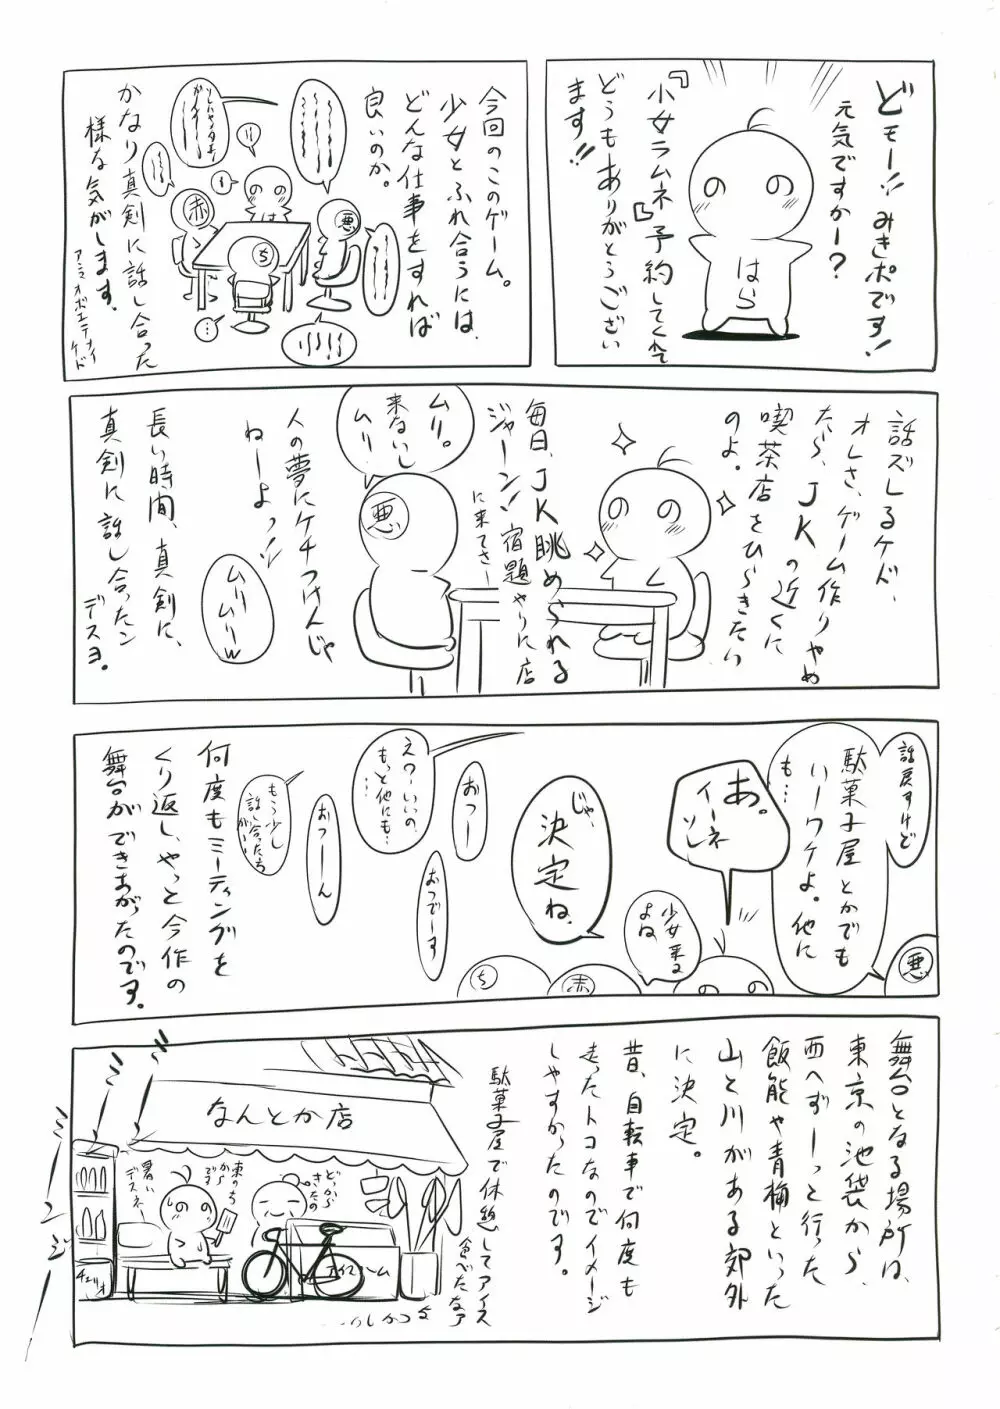 どモー!!みきポです!
元気ですかー?
『少女ラムネ』予約してくれて
どうもありがとうござい
ます!!
はら
今回のこのゲーム。
少女とふれ合うには、
どんな仕事をすれば
良いのか。
悪
赤
ち
は
かなり真剣に話し合った
様な気がします。
アンマオボエテナイ
ケド
話ズレるケド、
オレさ、ゲーム作りやめ
たら、JKの近くに
喫茶店をひらきたい
のよ。
毎日、JK眺められる
ジャーン!宿題やりに店
に来てさー
ムリ。
来ないし
ムリ
悪
人の夢にケチつけんじゃ
ねーよっ!!
ムリー
ムリーw
長い時間、真剣に、
真剣に話し合ったン
デスヨ。
話戻すけど
駄菓子屋とかでも
いーワケよ。他に
も…
悪
あ。
イーネ
ソレ
少女来る
よね
じゃ、
決定ね、
赤
ち
おつー
おつでーす
え?いいの、
もっと他にも…
おつーん
もう少し
話し合ったら
がい
何度もミーティングを
くり返し、やっと今作の
舞台ができあがったのです。
舞台となる場所は、
東京の池袋から、
西へずーっと行った
飯能や青梅といった
山と川がある郊外
に決定。
昔、自転車で何度も
走ったトコなのでイメージ
しやすかったのです。
駄菓子屋で休憩してアイス
食べたなァ
なつかしい…
なんとか店
どっから
きたの
東のち
から
です
暑い
デスネー
アイスクリーム
チェリオ
ミーンミーンジー